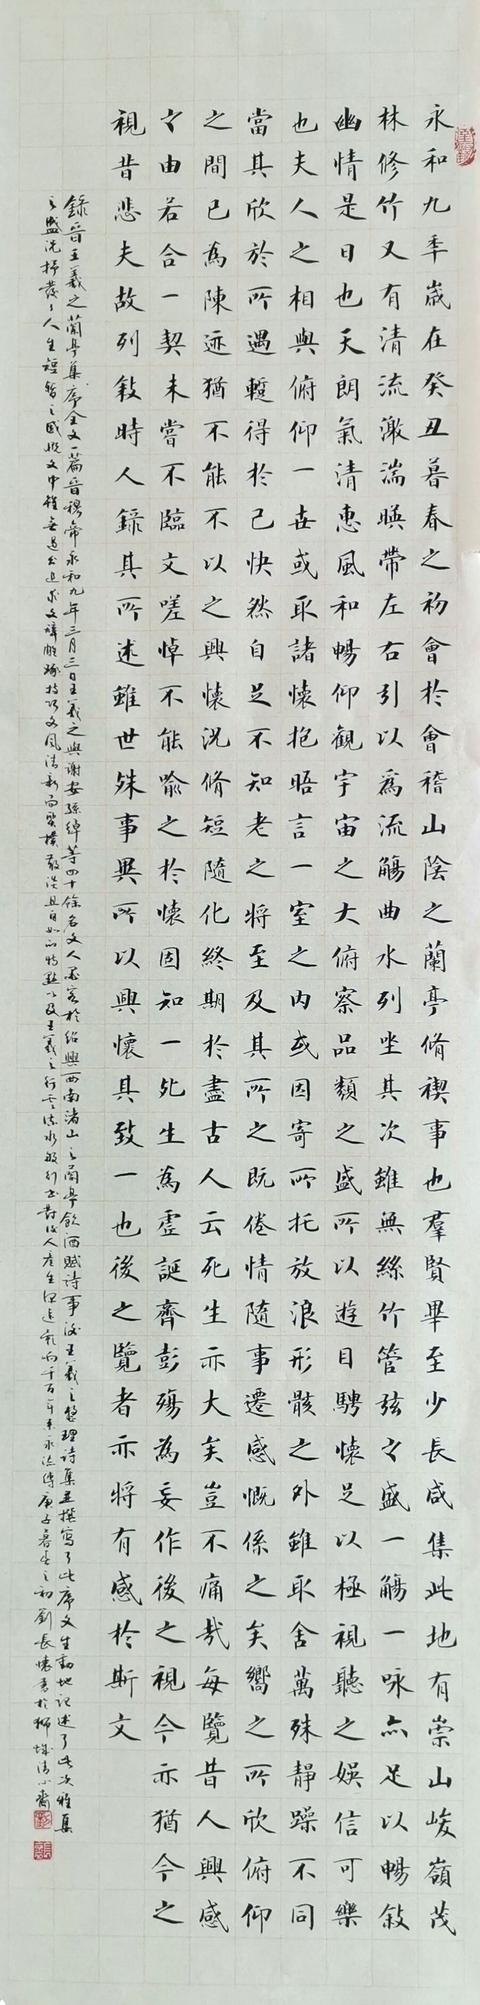 永和九年歲在癸丑暮春之初會於會稽山陰之蘭亭脩禊事也羣賢畢至少長咸集此地有崇山峻嶺茂
林修竹又有清流激湍暎帶左右引以為流觴曲水列坐其次雖無絲竹管弦之盛一觴一咏亦足以暢敘
幽情是日也天朗氣清惠風和暢仰觀宇宙之大俯察品類之盛所以遊目騁懷足以極視聽之娛信可樂
也夫人之相與俯仰一世或取諸懷抱晤言一室之內或因寄所托放浪形骸之外雖取舍萬殊靜躁不同
當其欣於所遇蹔得於己快然自足不知老之將至及其所之既倦情隨事遷感慨係之矣嚮之所欣俯仰
之間已為陳迹猶不能不以之興懷況脩短隨化終期於盡古人云死生亦大矣豈不痛哉每覽昔人興感
之由若合一契未嘗不臨文嗟悼不能喻之於懷固知一死生為虛誕齊彭殤為妄作後之視今亦猶今之
視昔悲夫故列敘時人錄其所述雖世殊事異所以興懷其致一也後之覽者亦將有感於斯文
錄晉王羲之蘭亭集序全文一篇晉穆帝永和九年三月三日王羲之與謝安孫綽等四十餘名文人墨客於紹興西南渚山之蘭亭飲酒賦詩事後王羲之整理詩集並撰寫了此序文生動地記述了此次雅集
之盛況抒發了人生短暫之感慨文中
庚子暮春之初劉長懷書於